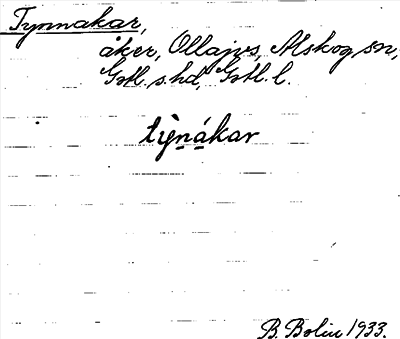 Tynnakar,
åker, Ollajvs, Alskog sn,
Gotl. s. hd, Gotl. l.
tỳnákar
B. Bolin 1933.